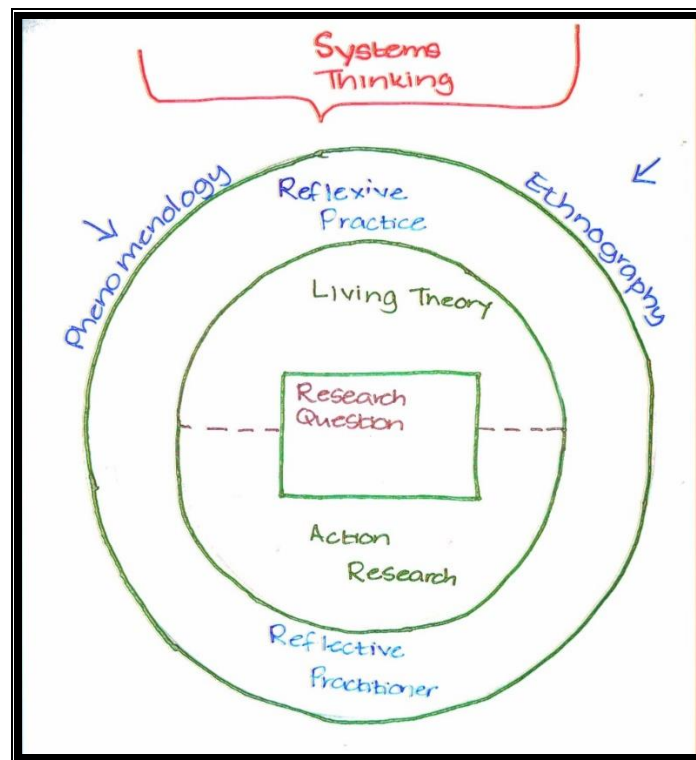 Systems
Thinking
Phenomenology
Ethnography
Reflexive
Practice
Living Theory
Research
Question
Action
Research
Reflective
Practitioner